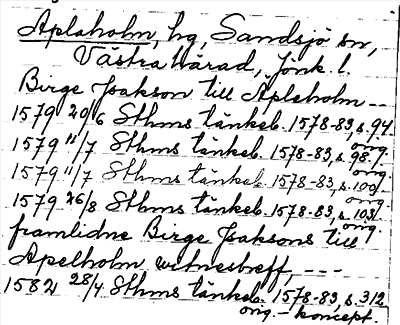 Aplaholm, hg, Sandsjö sn,
Västra härad, Jönk. l.
Birge Joakson till Äpleholm --
1579 20/6 Sthms tänkeb. 1578-83, s. 94.
orig.
1579 11/7 Sthms tänkeb. 1578-83, s. 98.
orig.
1579 11/7 Sthms tänkeb. 1578-83, s. 100.
orig.
1579 26/8 Sthms tänkeb. 1578-83, s. 103.
orig.
framlidne Birge Joaksons till
Apelholm witnesbreff, ---
1582 28/4 Sthms tänkeb. 1578-83, s. 312
orig. - koncept.